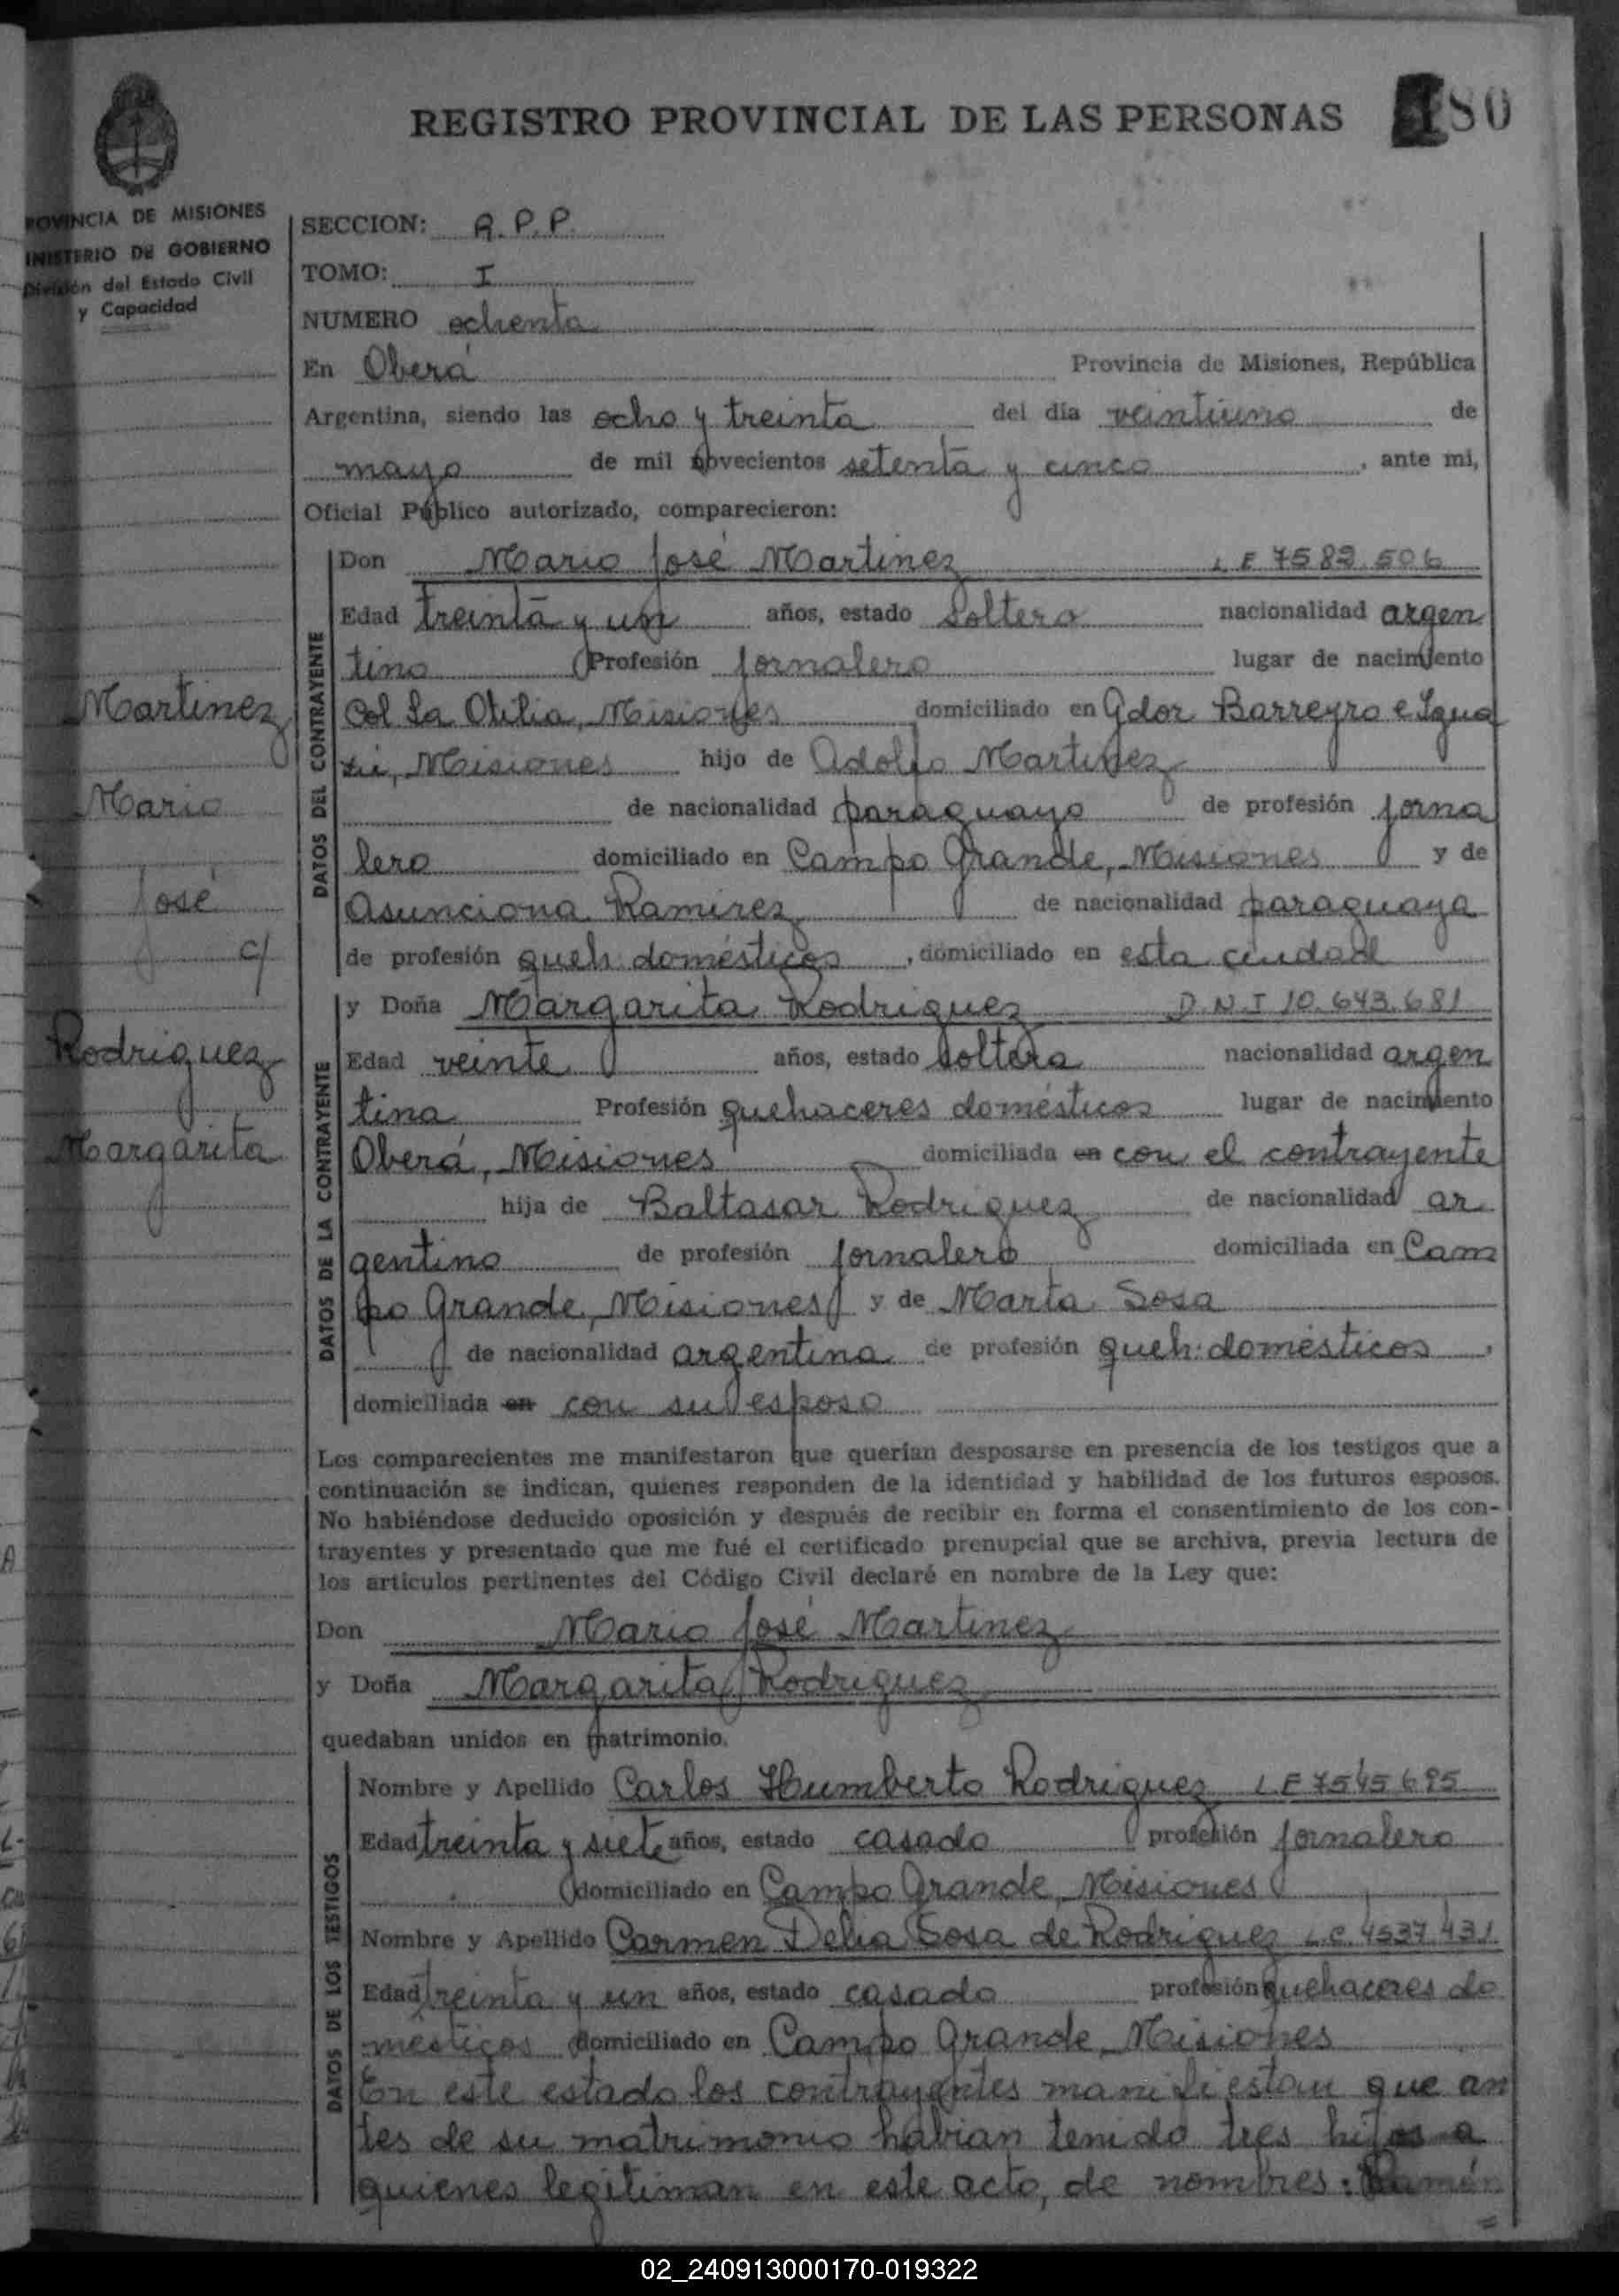 REGISTRO PROVINCIAL DE LAS PERSONAS
180
PROVINCIA DE MISIONES
MINISTERIO DE GOBIERNO
División del Estado Civil
y Capacidad
SECCION: R. P. P.
TOMO: I
NUMERO ochenta
En Oberá Provincia de Misiones, República
Argentina, siendo las ocho y treinta del día veintiuno de
mayo de mil novecientos setenta y cinco, ante mi,
Oficial Público autorizado, comparecieron:
Martinez
Mario
José
c/
Rodriguez
Margarita
DATOS DEL CONTRAYENTE
Don Mario José Martinez L E 7582.506
Edad treinta y un años, estado soltero nacionalidad argen
tino Profesión jornalero lugar de nacimiento
Col La Otilia, Misiones domiciliado en Gdor Barreyro e Igua
zú, Misiones hijo de Adolfo Martinez
de nacionalidad paraguayo de profesión jorna
lero domiciliado en Campo Grande, Misiones y de
Asunciona Ramirez de nacionalidad paraguaya
de profesión queh. domésticos, domiciliado en esta ciudad
DATOS DE LA CONTRAYENTE
y Doña Margarita Rodriguez D.N.I 10.643.681
Edad veinte años, estado soltera nacionalidad argen
tina Profesión quehaceres domésticos lugar de nacimiento
Oberá, Misiones domiciliada en con el contrayente
hija de Baltasar Rodriguez de nacionalidad ar
gentino de profesión jornalero domiciliada en Cam
po Grande, Misiones y de Marta Sosa
de nacionalidad argentina de profesión queh: domésticos,
domiciliada en con su esposo
Los comparecientes me manifestaron que querían desposarse en presencia de los testigos que a
continuación se indican, quienes responden de la identidad y habilidad de los futuros esposos.
No habiéndose deducido oposición y después de recibir en forma el consentimiento de los con-
trayentes y presentado que me fué el certificado prenupcial que se archiva, previa lectura de
los artículos pertinentes del Código Civil declaré en nombre de la Ley que:
Don Mario José Martinez
y Doña Margarita Rodriguez
quedaban unidos en matrimonio.
DATOS DE LOS TESTIGOS
Nombre y Apellido Carlos Humberto Rodriguez L.E 7545695
Edad treinta y siete años, estado casado profesión jornalero
domiciliado en Campo Grande, Misiones
Nombre y Apellido Carmen Delia Sosa de Rodriguez L.C. 4537.431
Edad treinta y un años, estado casado profesión quehaceres do
mésticos domiciliado en Campo Grande, Misiones
En este estado los contrayentes manifiestan que an
tes de su matrimonio habian tenido tres hijos a
quienes legitiman en este acto, de nombres: Ramón
02_240913000170-019322